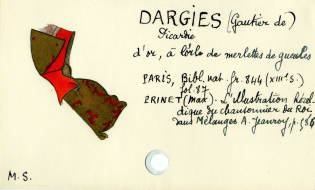 DARGIES (Gautier de)
Picardie
d'or, à l'orle de merlettes de gueules
PARIS, Bibl. nat. fr. 844 (XIIIe s.)
fol. 87
PRINET (Max). L'illustration héral-
dique du chansonnier du Roi
dans Mélanges A. Jeanroy, p. 536
M.S.